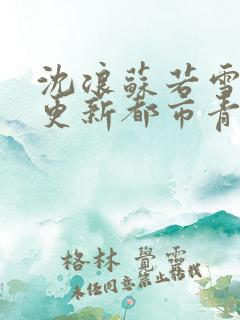 沈浪蘇若雪
更新都市青
格林 覺靈
未任同意禁止轉載